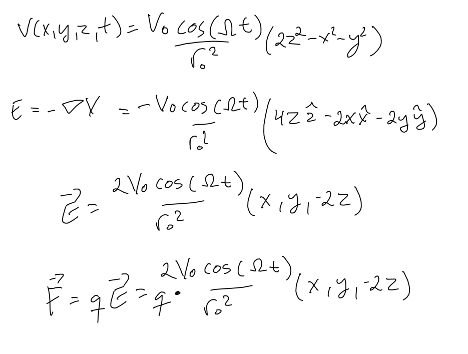 V(x,y,z,t) = V₀ cos(Ωt)/r₀² (2z²-x²-y²)
E = -∇V = -V₀ cos(Ωt)/r₀² (4z ẑ -2x x̂ -2y ŷ)
E⃗ = 2V₀ cos(Ωt)/r₀² (x, y, -2z)
F⃗ = qE⃗ = q · 2V₀ cos(Ωt)/r₀² (x, y, -2z)